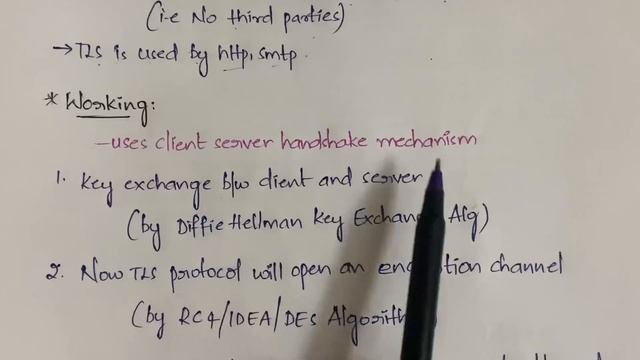 (i.e No third parties)
→TLS is used by http, smtp.
* Working:
-uses client server handshake mechanism
1. Key exchange b/w client and server
(by Diffie Hellman Key Alg)
2. Now TLS protocol will open an channel
(by RC4/IDEA/DES